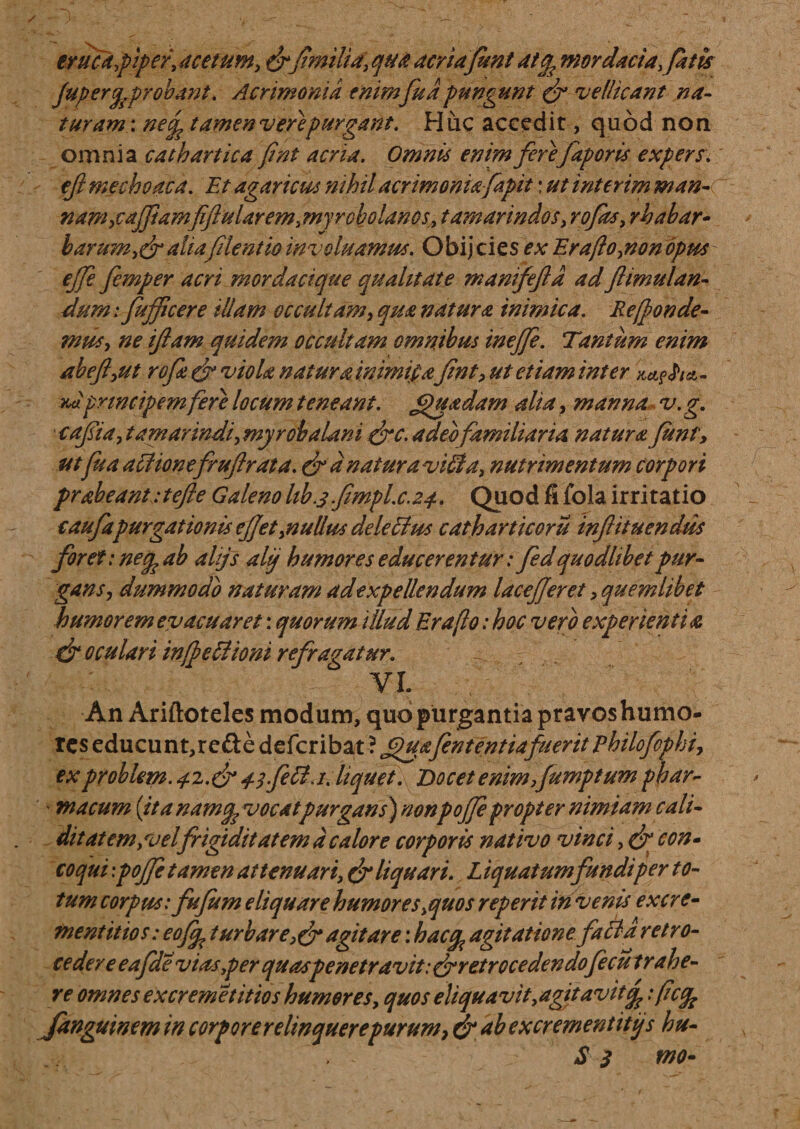 eruca,piper,acetum, & similia,quæ acria sunt atq; mordacia,satis
superq; probant. Acrimonia enim sua pungunt & vellicant na-
turam: neq; tamen vere purgant. Huc accedit, quòd non
omnia cathartica sint acria. Omnis enim ferè saporis expers
est mechoaca. Et agaricus nihil acrimoniæ sapit: ut interim man-
nam,cassiam fistularem,myrobolanos, tamarindos, rosas, rhabar-
barum,& alia silentio involuamus. Obijcies ex Erasto,non opus
esse semper acri mordacique qualitate manifestâ ad stimulan-
dum: sufficere illam occultam, quæ naturæ inimica. Responde-
mus, ne istam quidem occultam omnibus inesse. Tantùm enim
abest,ut rosæ & violæ naturæ inimicæ sint, ut etiam inter καρδια-
κὰ principem ferè locum teneant. Quædam alia, manna v.g.
cassia, tamarindi, myrobalani &c. adeò familiaria naturæ sunt,
ut sua actione frustrata. & à natura victa, nutrimentum corpori
præbeant: teste Galeno lib.3.simpl.c.24. Quod si sola irritatio
causa purgationis esset,nullus delectus catharticorū instituendus
foret: neq; ab alijs alij humores educerentur: sed quodlibet pur-
gans, dummodò naturam ad expellendum lacesseret, quemlibet
humorem evacuaret: quorum illud Erasto: hoc verò experientiæ
& oculari inspectioni refragatur.
VI.
An Aristoteles modum, quo purgantia pravos humo-
res educunt, rectè describat? Quæ sententia fuerit Philosophi,
ex problem. 42.& 43.sect.1. liquet. Docet enim,sumptum phar-
macum (ita namq; vocat purgans) non posse propter nimiam cali-
ditatem,vel frigiditatem à calore corporis nativo vinci, & con-
coqui: posse tamen attenuari, & liquari. Liquatum fundi per to-
tum corpus: fusum eliquare humores,quos reperit in venis excre-
mentitios: eosq; turbare,& agitare: hacq; agitatione factâ retro-
cedere easdē vias,per quas penetravit: & retrocedendo secū trahe-
re omnes excremētitios humores, quos eliquavit,agitavitq;: sicq;
sanguinem in corpore relinquere purum, & ab excrementitijs hu-
S 3 mo-